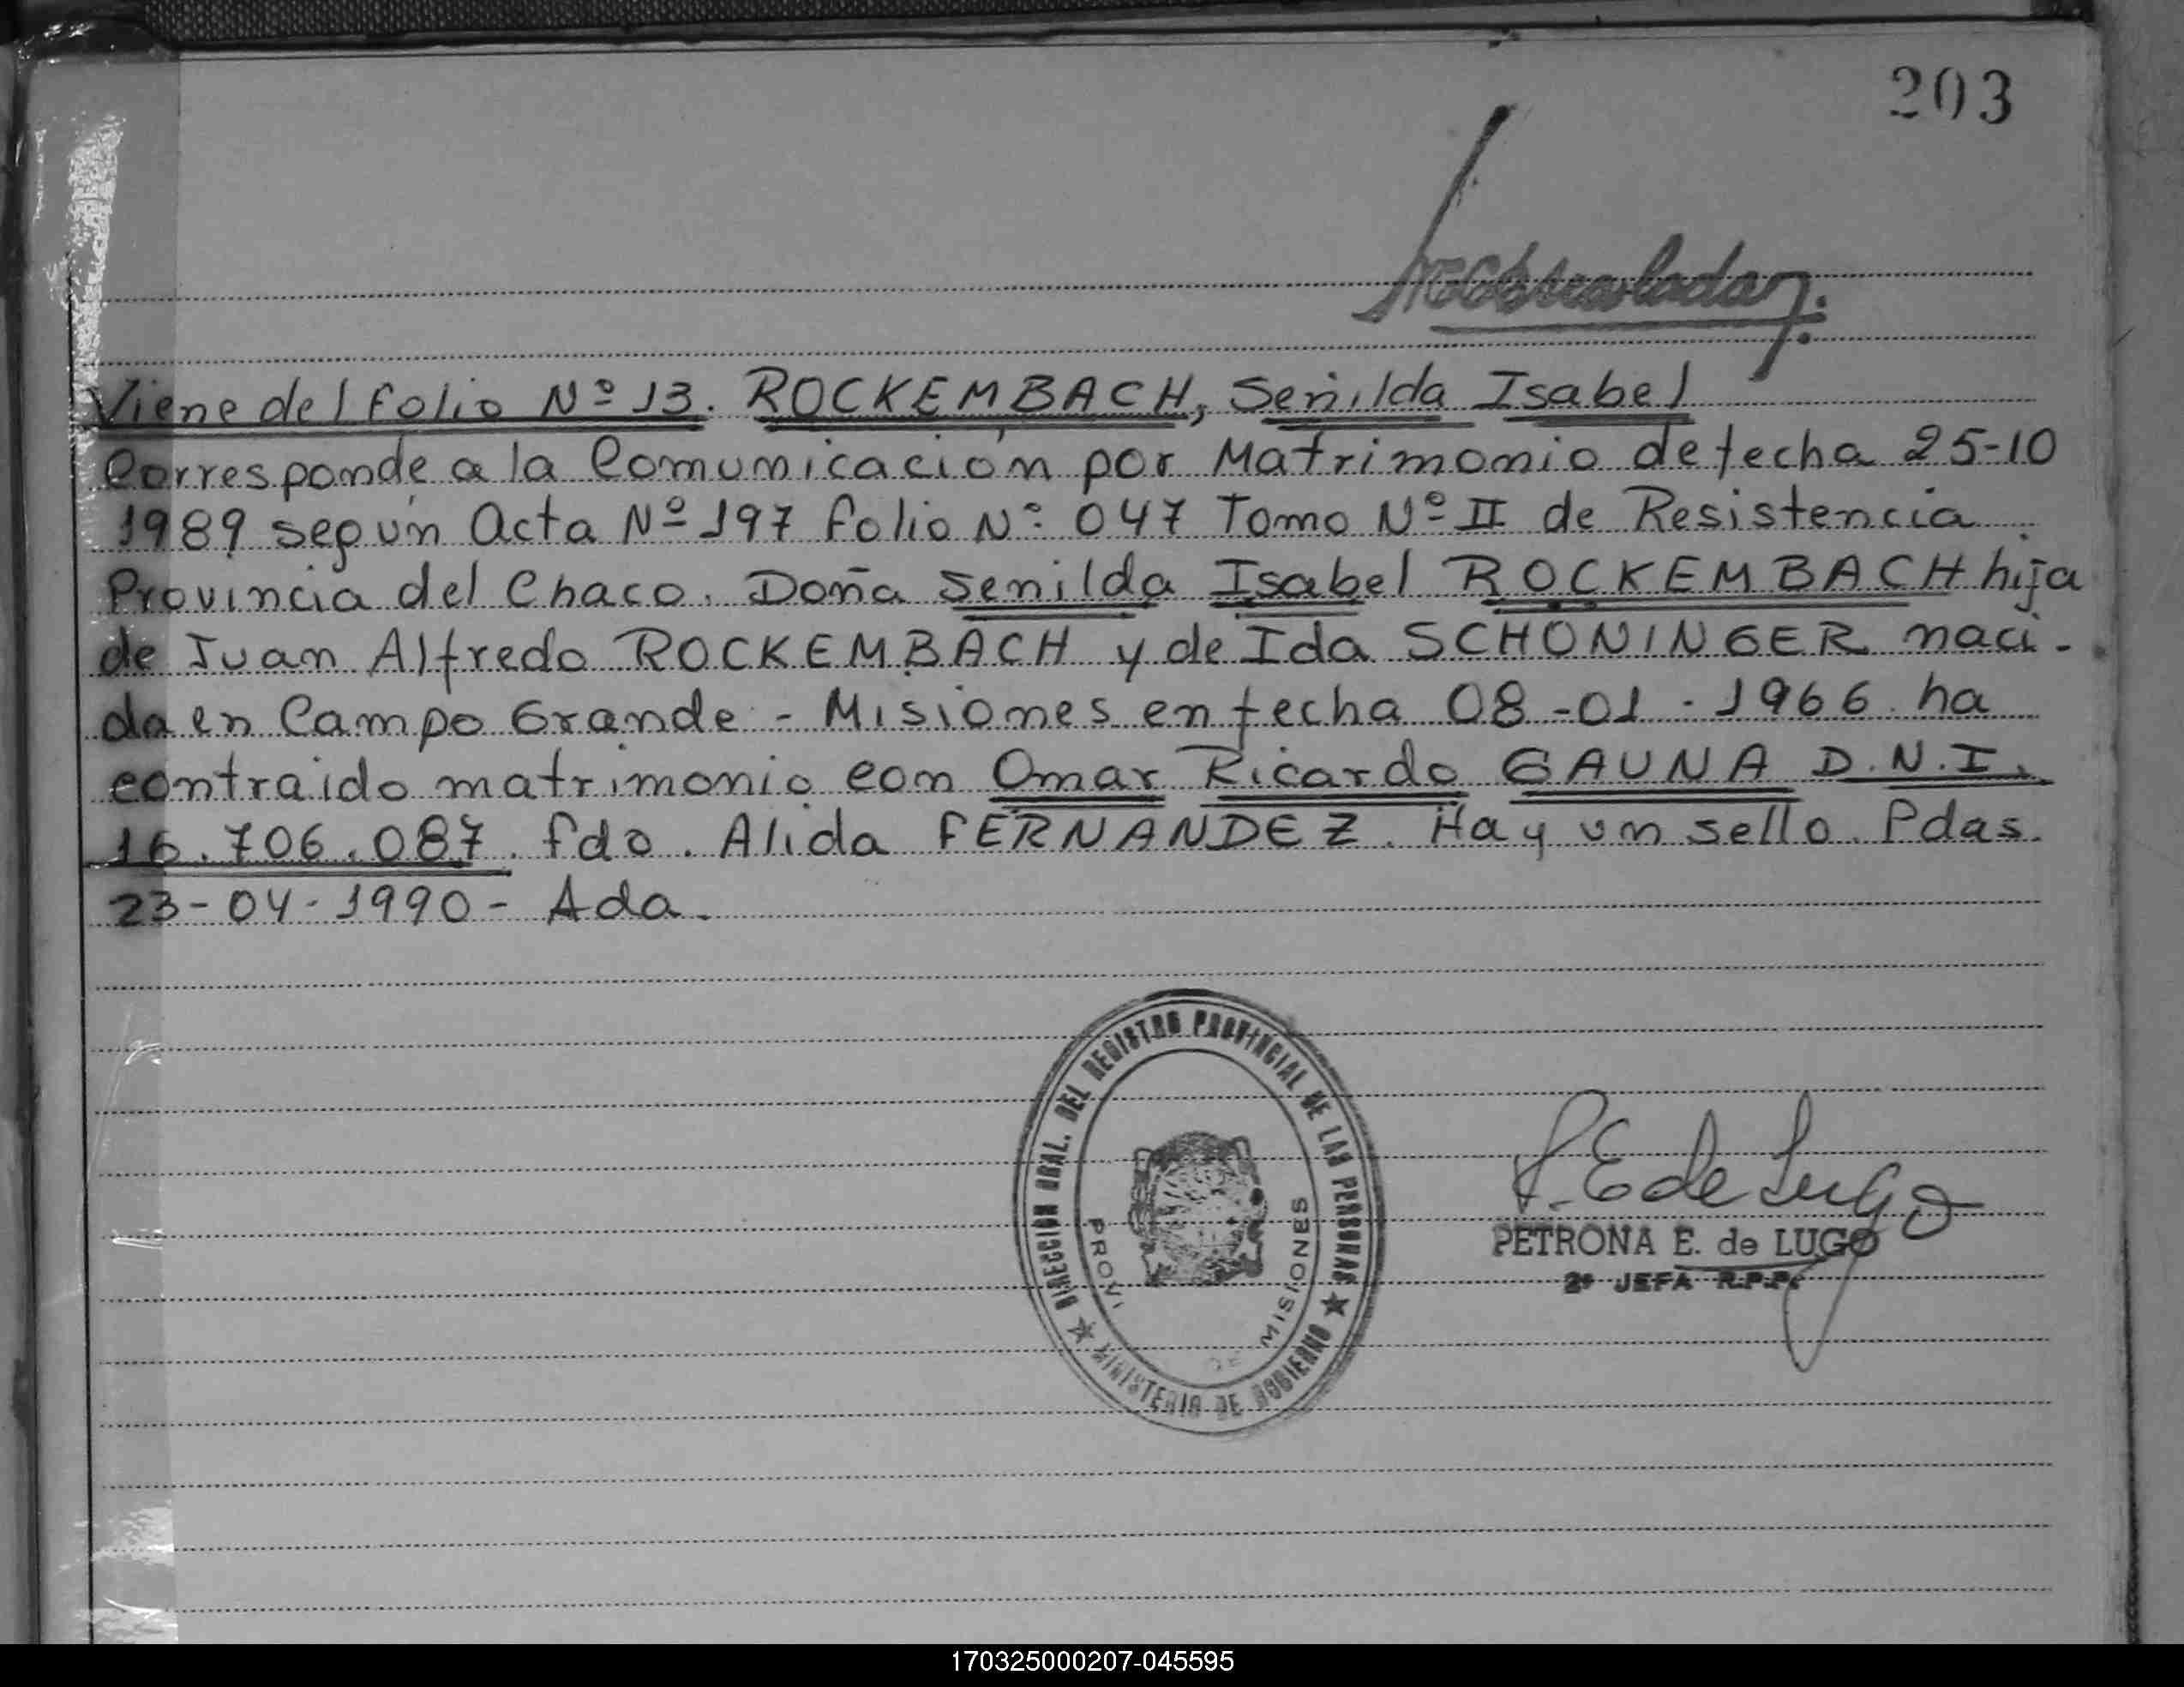 203
Viene del folio Nº 13. ROCKEMBACH, Senilda Isabel
Corresponde a la Comunicación por Matrimonio de fecha 25-10
1989 según Acta Nº 197 folio Nº 047 Tomo Nº II de Resistencia
Provincia del Chaco. Doña Senilda Isabel ROCKEMBACH hija
de Juan Alfredo ROCKEMBACH y de Ida SCHONINGER naci-
da en Campo Grande - Misiones en fecha 08-01-1966 ha
contraido matrimonio con Omar Ricardo GAUNA D.N.I.
16.706.087. fdo. Alida FERNANDEZ. Hay un sello. Pdas.
23-04-1990- Ada.
DIRECCION GRAL. DEL REGISTRO PROVINCIAL DE LAS PERSONAS
★ MINISTERIO DE GOBIERNO ★
PROV. DE MISIONES
P. E de Lugo
PETRONA E. de LUGO
2º JEFA R.P.P.
170325000207-045595